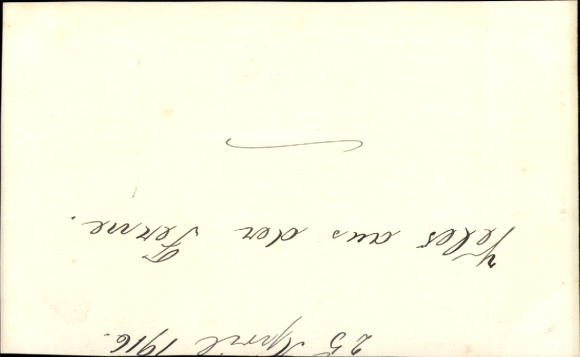 25 April 1916.
Veles aus der Ferne.